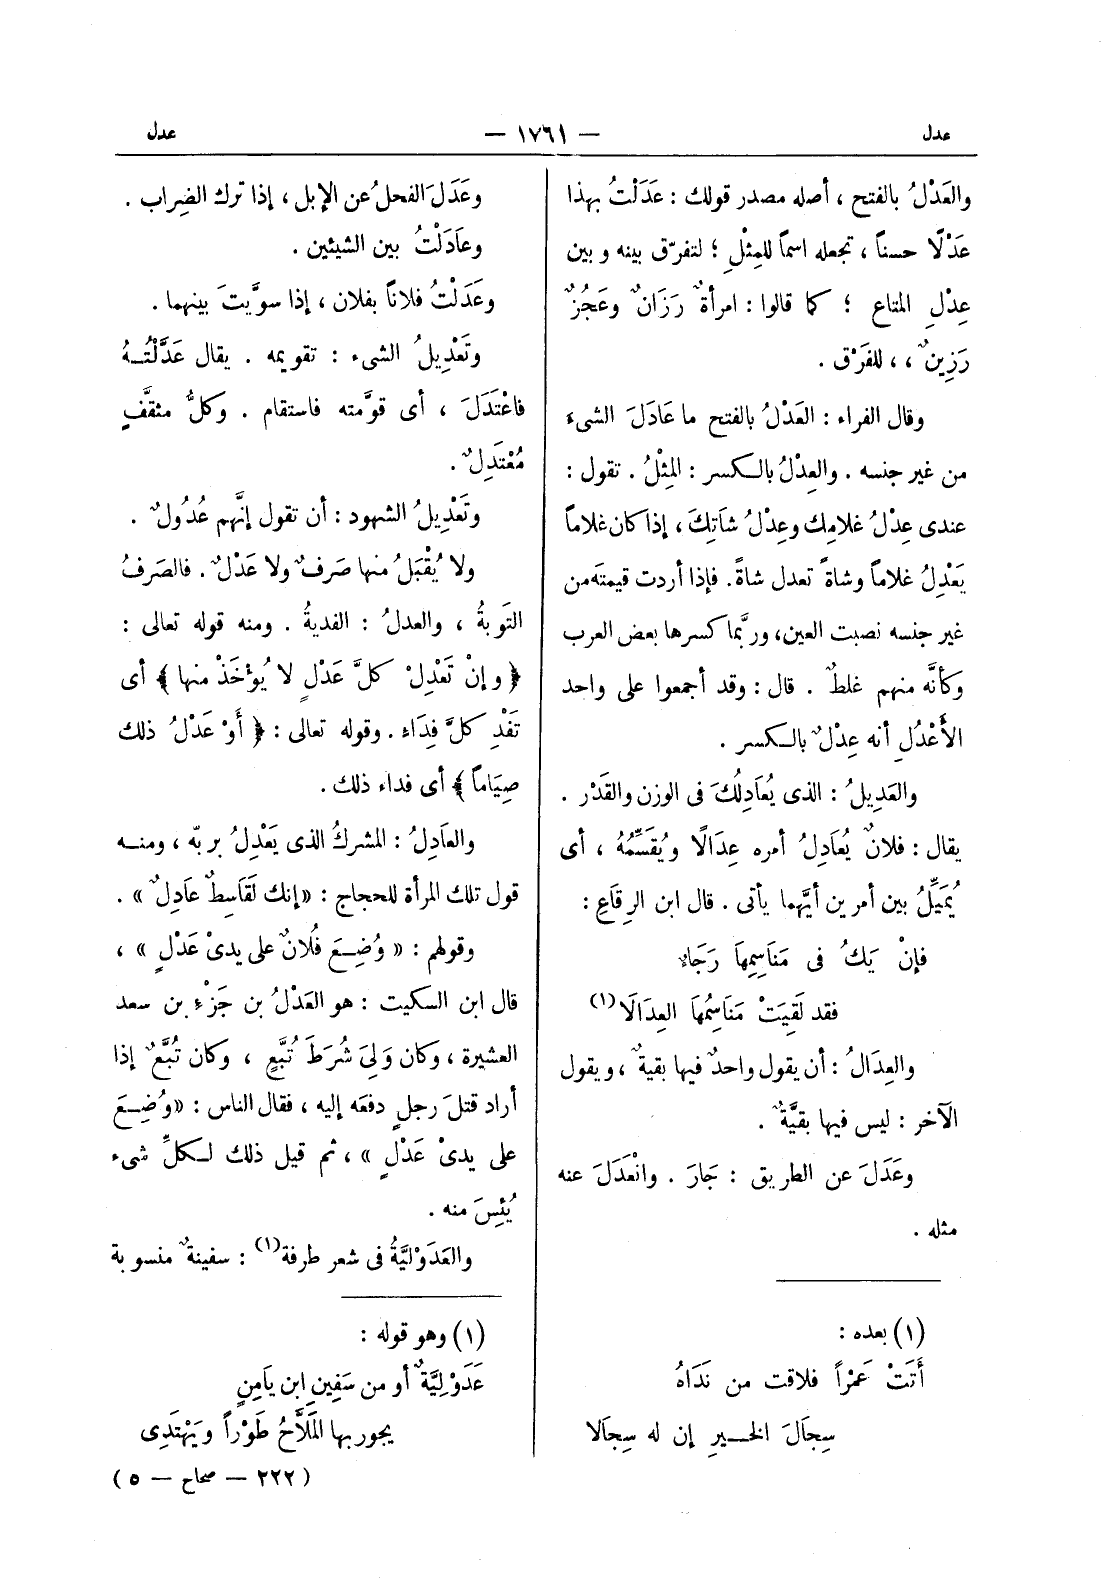 عدل — ١٧٦١ — عدل
والعَدْلُ بالفتح ، أصله مصدر قولك : عَدَلْتُ بهذا
عَدْلًا حسناً ، تجعله اسماً للمِثْلِ ؛ لتفرّق بينه وبين
عِدْلِ المتاع ؛ كما قالوا : امرأةٌ رَزَانٌ وعَجُزٌ
رَزِينٌ ، ، للفَرْق .
وقال الفراء : العَدْلُ بالفتح ما عَادَلَ الشىءَ
من غير جنسه . والعِدْلُ بالكسر : المِثْلُ . تقول :
عندى عِدْلُ غلامِك وعِدْلُ شاتِكَ ، إذا كان غلاماً
يَعْدِلُ غلاماً وشاةً تعدل شاةً . فإذا أردت قيمتَه من
غير جنسه نصبت العين، وربَّما كسرها بعض العرب
وكأنَّه منهم غلطٌ . قال : وقد أجمعوا على واحد
الأَعْدَلِ أنه عِدْلٌ بالكسر .
والعَدِيلُ : الذى يُعَادِلُكَ فى الوزن والقَدْر .
يقال : فلانٌ يُعَادِلُ أمره عِدَالًا ويُقَسِّمُهُ ، أى
يُمَيِّلُ بين أمرين أيَّهما يأتى . قال ابن الرِقَاعِ :
فإنْ يَكُ فى مَنَاسِمِهَا رَجَاءٌ
فقد لَقِيَتْ مَنَاسِمُهَا العِدَالَا (١)
والعِدَالُ : أن يقول واحدٌ فيها بقيةٌ ، ويقول
الآخر : ليس فيها بقيَّةٌ .
وعَدَلَ عن الطريق : جَارَ . وانْعَدَلَ عنه
مثله .
(١) بعده :
أَتَتْ عَمْراً فلاقت من نَدَاهُ
سِجَالَ الخيرِ إن له سِجَالا
وعَدَلَ الفحلُ عن الإبل ، إذا ترك الضِراب .
وعَادَلْتُ بين الشيئين .
وعَدَلْتُ فلاناً بفلان ، إذا سوَّيتَ بينهما .
وتَعْدِيلُ الشىء : تقويمه . يقال عَدَّلْتُهُ
فاعْتَدَلَ ، أى قوَّمته فاستقام . وكلُّ مثقَّفٍ
مُعْتَدِلٌ .
وتَعْدِيلُ الشهود : أن تقول إنَّهم عُدُولٌ .
ولا يُقْبَلُ منها صَرفٌ ولا عَدْلٌ . فالصَرفُ
التَوبةُ ، والعدلُ : الفديةُ . ومنه قوله تعالى :
﴿ وإنْ تَعْدِلْ كلَّ عَدْلٍ لا يُؤْخَذْ منها ﴾ أى
تَفْدِ كلَّ فِدَاء . وقوله تعالى : ﴿ أَوْ عَدْلُ ذلك
صِيَاماً ﴾ أى فداء ذلك .
والعَادِلُ : المشركُ الذى يَعْدِلُ بربّه ، ومنه
قول تلك المرأة للحجاج : «إنك لَقَاسِطٌ عَادِلٌ » .
وقولهم : « وُضِعَ فُلَانٌ على يدىْ عَدْلٍ » ،
قال ابن السكيت : هو العَدْلُ بن جَزْءِ بن سعد
العشيرة ، وكان وَلِىَ شُرَطَ تُبَّعٍ ، وكان تُبَّعٌ إذا
أراد قتلَ رجلٍ دفعَه إليه ، فقال الناس : «وُضِعَ
على يدىْ عَدْلٍ » ، ثم قيل ذلك لكلِّ شىء
يُئِسَ منه .
والعَدَوْلِيَّةُ فى شعر طرفة (١) : سفينةٌ منسوبة
(١) وهو قوله :
عَدَوْلِيَّةٌ أو من سَفِينِ ابن يَامِنٍ
يجور بها المَلَّاحُ طَوْراً ويَهْتَدِى
( ٢٢٢ — صحاح — ٥ )